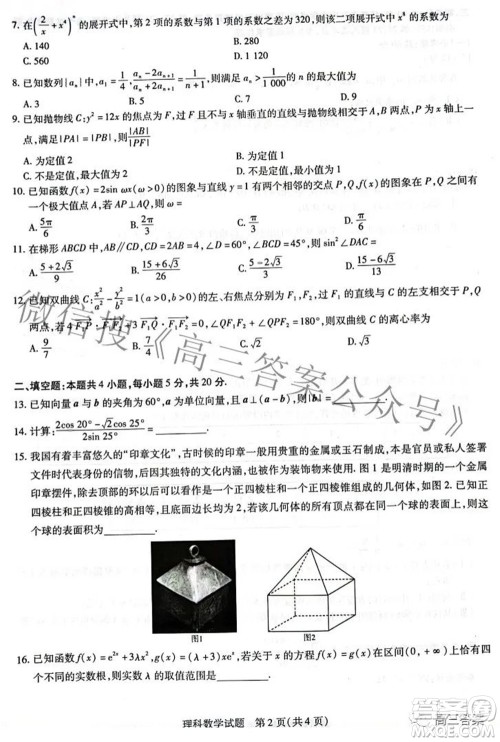 7. 在(2/x+x⁴)ⁿ的展开式中,第2项的系数与第1项的系数之差为320,则该二项展开式中x⁸的系数为
A. 140 B. 280
C. 560 D. 1 120
8. 已知数列{aₙ}中,a₁=1/4,(aₙ-2aₙ₊₁)/(aₙ+2aₙ₊₁)=1/(n+1),则满足aₙ>1/1 000的n的最大值为
A. 3 B. 5 C. 7 D. 9
9. 已知抛物线C:y²=12x的焦点为F,过F且与x轴不垂直的直线与抛物线相交于A,B两点,P为x轴上一
点,满足|PA|=|PB|,则|AB|/|PF|
A. 为定值2 B. 为定值
C. 不是定值,最大值为 D. 不是定值,最小值为
10. 已知函数f(x)=2sin ωx(ω>0)的图象与直线y=1有两个相邻的交点P,Q,且f(x)的图象在P,Q之间有
一个极大值点A,若AP⊥AQ,则ω=
A. 5π/6 B. 2π/3 C. π/2 D. π/3
11. 在梯形ABCD中,AB∥CD,CD=2AB=4,∠ADC=60°,∠BCD=45°,则sin²∠DAC=
A. (5+2√3)/9 B. (15+6√3)/26 C. (5-2√3)/3 D. (15-6√3)/13
12. 已知双曲线C:x²/a²-y²/b²=1(a>0,b>0)的左、右焦点分别为F₁,F₂,过F₂的直线与C的右支交于P,Q
两点,若
A. 9/7 B. 7/4 C. √2
二、填空题:本题共4小题,每小题5分,共20分.
13. 已知向量a与b的夹角为60°,且b为单位向量,且a⊥(a-b),则|a|=
14. 计算:(2cos 20°-√2cos 25°)/(2sin 25°)=
15. 我国有着丰富悠久的“印章文化”,古时候的印章一般用贵重的金属或玉石制成,本是官员或私人签署
文件时代表身份的信物,后因其独特的文化内涵,也被作为装饰物来使用.图1是明清时期的一个金属
印章摆件,除去顶部的环以后可以看作是一个正四棱柱和一个正四棱锥组成的几何体,如图2.已知正
四棱柱和正四棱锥的高相等,且底面边长均为2,若该几何体的所有顶点都在一个球的表面上,则这
个球的表面积为________.
图1 图2
16. 已知函数f(x)=e²ˣ+3λx²,g(x)=(λ+3)xeˣ,若关于x的方程f(x)=g(x)在区间(0,+∞)上恰有
四个不同的实数根,则实数λ的取值范围是________.
理科数学试题 第2页(共4页)
微信搜《高三答案公众号》
高三答案